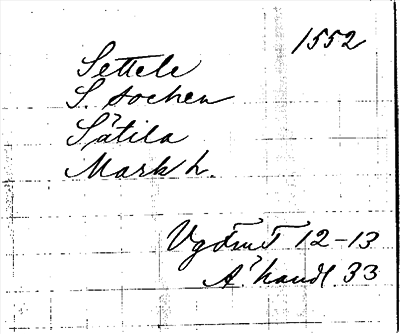 1552
Settele
S. socken
Sätila
Mark h.
12-13
Ä. handl. 33